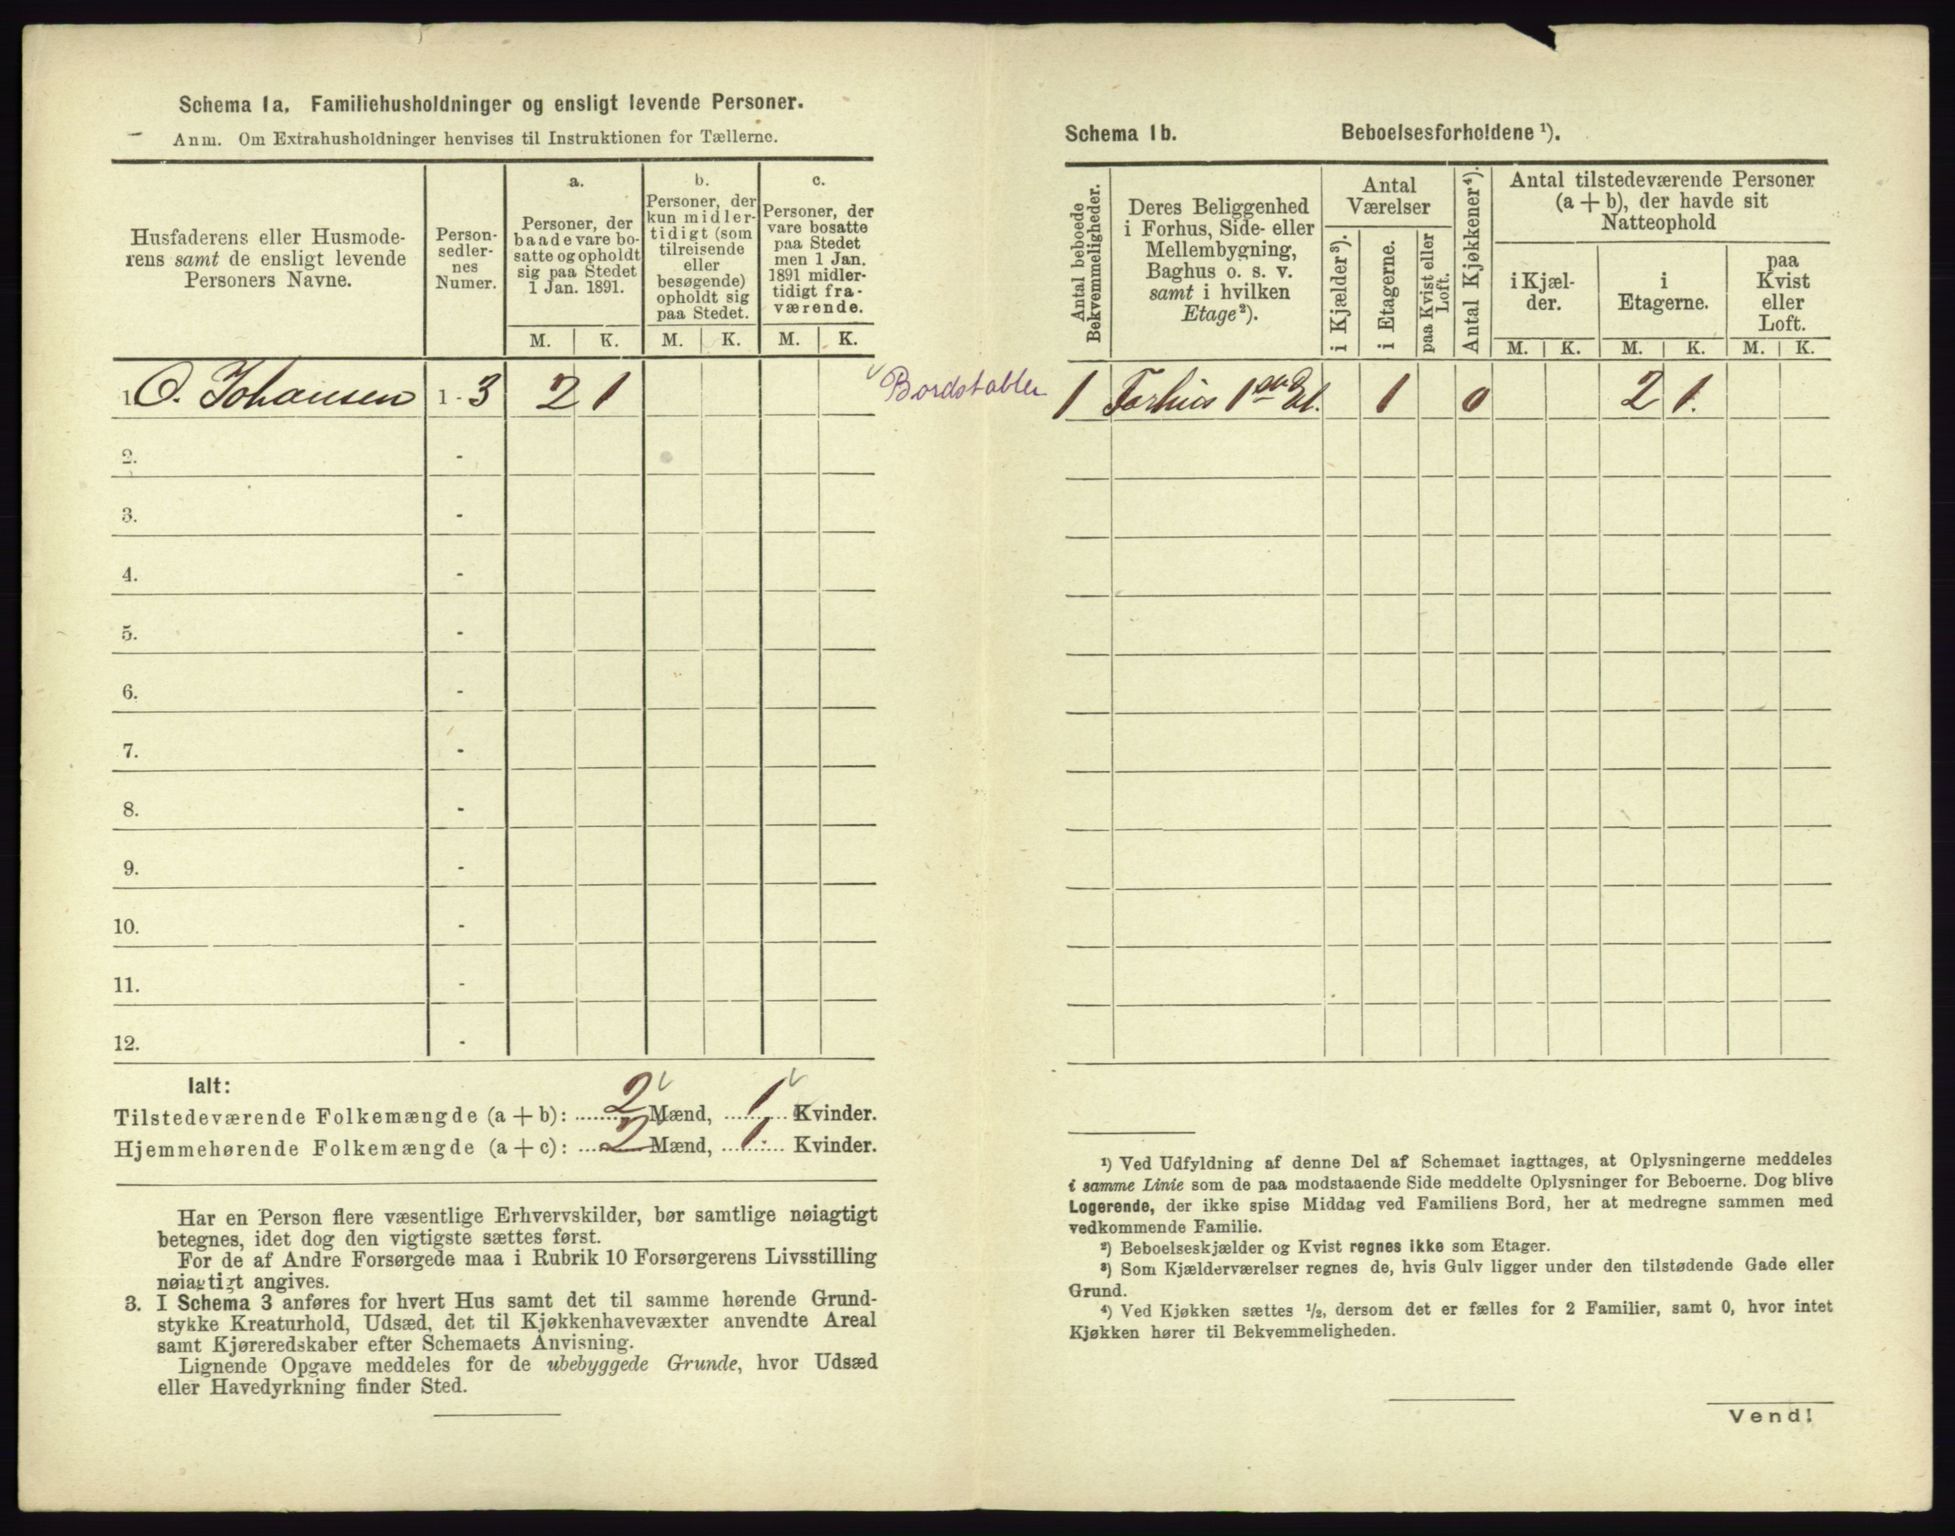 Schema 1a. Familiehusholdninger og ensligt levende Personer.
Anm. Om Extrahusholdninger henvises til Instruktionen for Tællerne.
Husfaderens eller Husmoderens samt de ensligt levende Personers Navne.
Person-sedler-nes Numer.
a.
Personer, der baade vare bosatte og opholdt sig paa Stedet 1 Jan. 1891.
b.
Personer, der kun midlertidigt (som tilreisende eller besøgende) opholdt sig paa Stedet.
c.
Personer, der vare bosatte paa Stedet men 1 Jan. 1891 midlertidigt fraværende.
M. K. M. K. M. K.
1. O. Johansen 1 - 3 2 1
Bordstabler
2. -
3. -
4. -
5. -
6. -
7. -
8. -
9. -
10. -
11. -
12. -
Ialt:
Tilstedeværende Folkemængde (a + b): 2 Mænd, 1 Kvinder.
Hjemmehørende Folkemængde (a + c): 2 Mænd, 1 Kvinder.
Har en Person flere væsentlige Erhvervskilder, bør samtlige nøiagtigt
betegnes, idet dog den vigtigste sættes først.
For de af Andre Forsørgede maa i Rubrik 10 Forsørgerens Livsstilling
nøiagtigt angives.
3. I Schema 3 anføres for hvert Hus samt det til samme hørende Grund-
stykke Kreaturhold, Udsæd, det til Kjøkkenhavevæxter anvendte Areal
samt Kjøreredskaber efter Schemaets Anvisning.
Lignende Opgave meddeles for de ubebyggede Grunde, hvor Udsæd
eller Havedyrkning finder Sted.
Schema 1b. Beboelsesforholdene ¹).
Antal beboede Bekvemmeligheder.
Deres Beliggenhed i Forhus, Side- eller Mellembygning, Baghus o. s. v. samt i hvilken Etage²).
Antal Værelser
i Kjælder³).
i Etagerne.
paa Kvist eller Loft.
Antal Kjøkkener⁴).
Antal tilstedeværende Personer (a + b), der havde sit Natteophold
i Kjælder.
i Etagerne.
paa Kvist eller Loft.
M. K. M. K. M. K.
1 Forhus 1ste Et. 1 0 2 1.
¹) Ved Udfyldning af denne Del af Schemaet iagttages, at Oplysningerne meddeles
i samme Linie som de paa modstaaende Side meddelte Oplysninger for Beboerne. Dog blive
Logerende, der ikke spise Middag ved Familiens Bord, her at medregne sammen med
vedkommende Familie.
²) Beboelseskjælder og Kvist regnes ikke som Etager.
³) Som Kjælderværelser regnes de, hvis Gulv ligger under den tilstødende Gade eller
Grund.
⁴) Ved Kjøkken sættes ½, dersom det er fælles for 2 Familier, samt 0, hvor intet
Kjøkken hører til Bekvemmeligheden.
Vend!